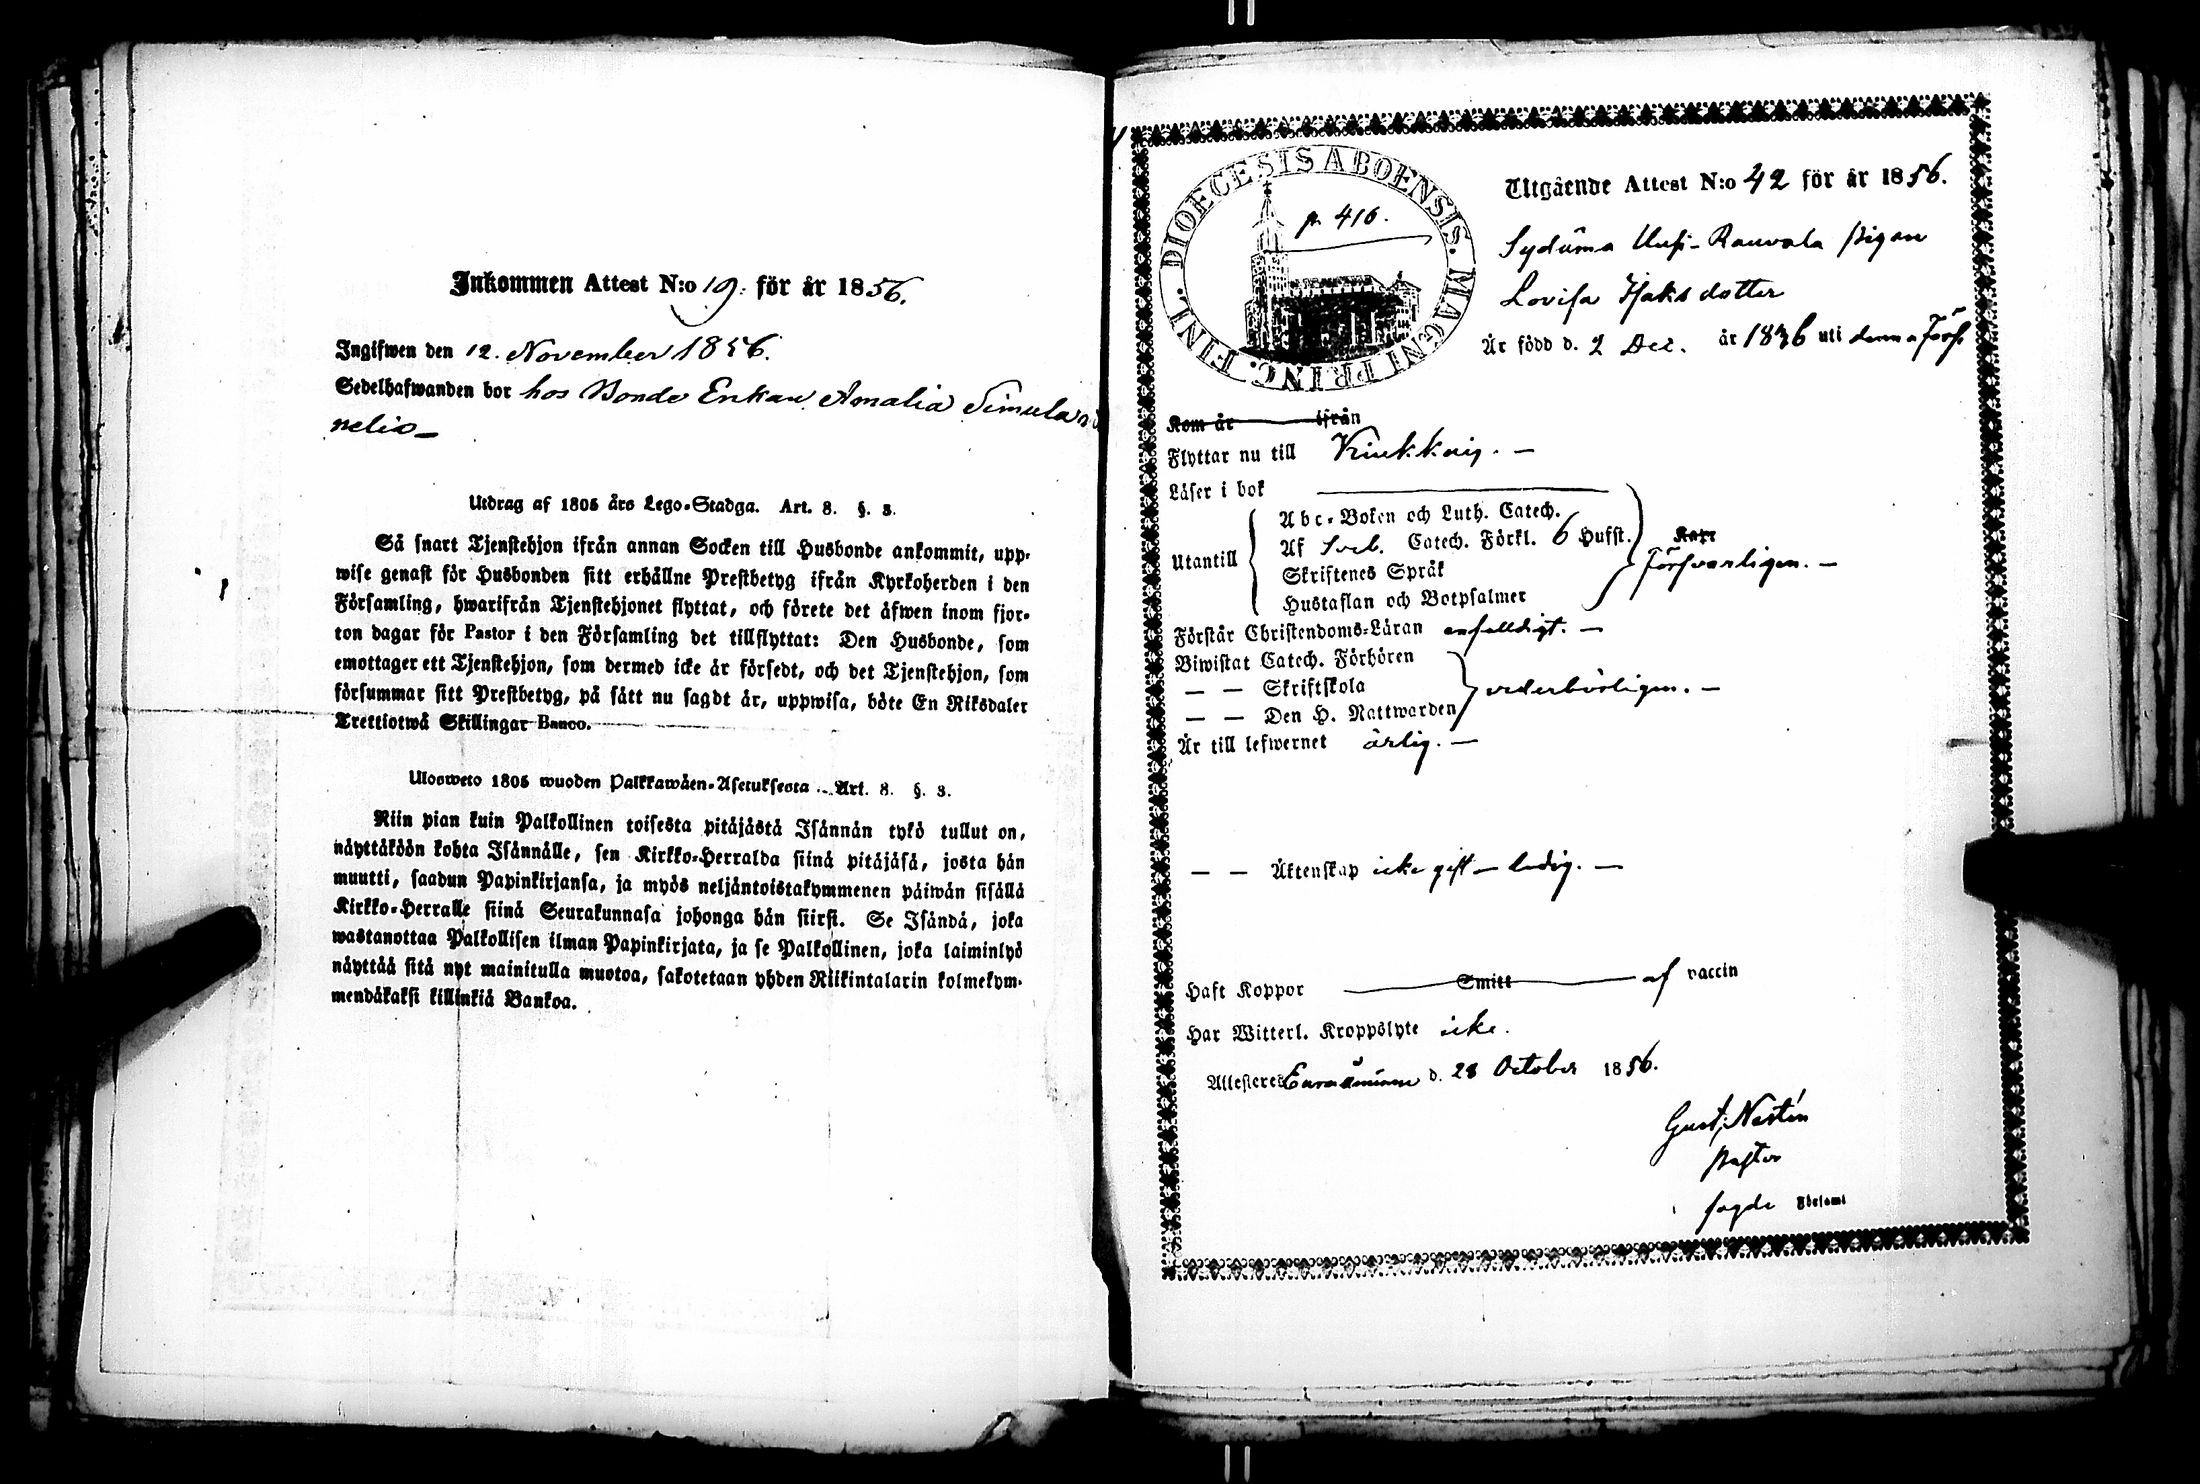 Inkommen Attest N:o 19: för år 1856.
Ingifwen den 12. November 1856.
Sedelhafwanden bor hos Bonde Enkan Amalia Simula
nelio_
Utdrag af 1805 års Lego-Stadga. Art. 8. §. 3.
Så snart Tjenstehjon ifrån annan Socken till Husbonde ankommit, upp-
wise genast för Husbonden sitt erhållne Prestbetyg ifrån Kyrkoherden i den
Församling, hwarifrån Tjenstehjonet flyttat, och förete det äfwen inom fjor-
ton dagar för Pastor i den Församling det tillflyttat: Den Husbonde, som
emottager ett Tjenstehjon, som dermed icke är försedt, och det Tjenstehjon, som
försummar sitt Prestbetyg, på sätt nu sagdt är, uppwisa, böte En Riksdaler
Trettiotwå Skillingar Banco.
Ulosweto 1805 wuoden Palkkawäen-Asetuksesta Art. 8. §. 3.
Niin pian kuin Palkollinen toisesta pitäjästä Isännän tykö tullut on,
näyttäköön kohta Isännälle, sen Kirkko-Herralda siinä pitäjäsä, josta hän
muutti, saadun Papinkirjansa, ja myös neljäntoistakymmenen päiwän sisällä
Kirkko-Herralle siinä Seurakunnasa johonga hän siirsi. Se Isändä, joka
wastanottaa Palkollisen ilman Papinkirjata, ja se Palkollinen, joka laiminlyö
näyttää sitä nyt mainitulla muotoa, sakotetaan yhden Riikintalarin kolmekym-
mendäkaksi killinkiä Bankoa.
DIOECESIS ABOENSIS. MAGNI PRINC. FINL.
p. 416.
Utgående Attest N:o 42 för år 1856.
Sydänma Uusi-Rauvola pigan
Lovisa Isaksdotter
Är född d. 2 Dec. år 1836 uti denna Förs.
Kom år ifrån
Flyttar nu till Kiukkais. _
Läser i bok
Utantill
Abc-Boken och Luth. Catech.
Af Sveb. Catech. Förkl. 6 Hufst.
Skriftenes Språk
Hustaflan och Botpsalmer
Kan
Försvarligen. _
Förstår Christendoms-Läran enfalldigt. _
Biwistat Catech. Förhören
— — Skriftskola
— — Den H. Nattwarden
vederbörligen. _
Är till lefwernet ärlig. _
— — Äktenskap icke gift _ ledig. _
Haft Koppor Smitt af vaccin
Har Witterl. Kroppslyte icke.
Attesteres Euraåminne d. 28 October 1856.
Gust. Nestén
Pastor
sagde Församl